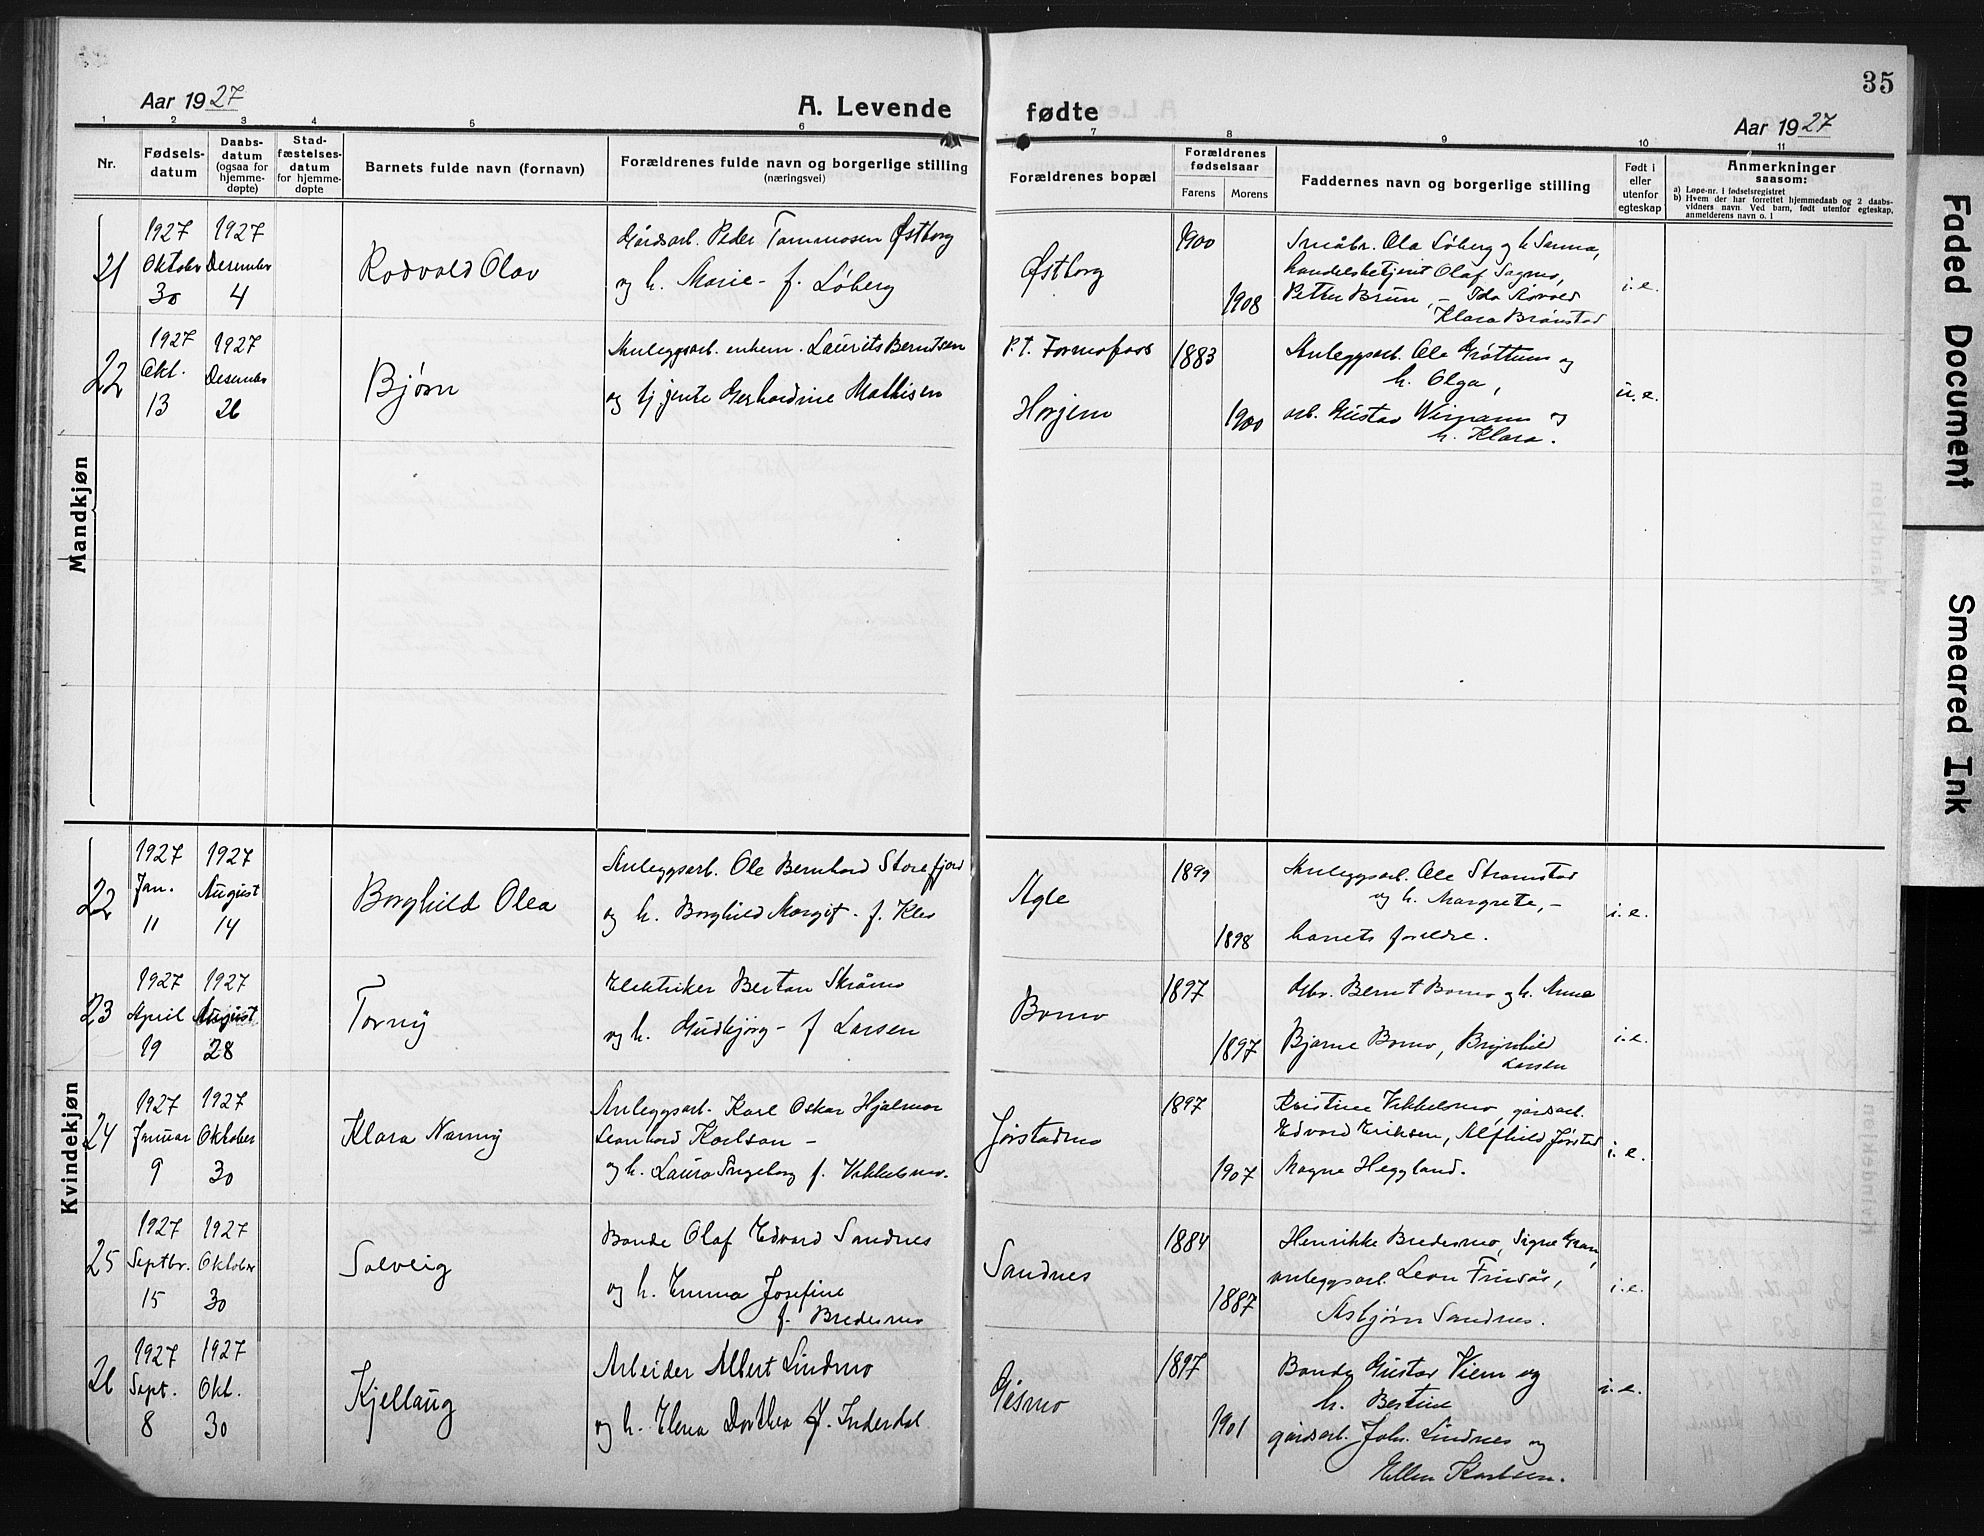 35
Aar 1927
A. Levende
fødte
Aar 1927
1 2 3 4 5 6 7 8 9 10 11
Nr.
Fødsels-
datum
Daabs-
datum
(ogsaa for
hjemme-
døpte)
Stad-
fæstelses-
datum
for hjemme-
døpte
Barnets fulde navn (fornavn)
Forældrenes fulde navn og borgerlige stilling
(næringsvei)
Forældrenes bopæl
Forældrenes
fødselsaar
Farens Morens
Faddernes navn og borgerlige stilling
Født i
eller
utenfor
egteskap
Anmerkninger
saasom:
a) Løpe-nr. i fødselsregistret
b) Hvem der har forrettet hjemmedaab og 2 daabs-
vidners navn. Ved barn, født utenfor egteskap,
anmelderens navn o. l
Mandkjøn
21
1927
Oktober
30
1927
Desember
4
Rodvald Olav
Gårdsarb. Peder Tommosen Østborg
og h. Marie - f. Løberg
Østborg
1900
1908
Småbr. Ola Løberg og h. Sanna,
handelsbetjent Olaf Sagmo,
Petter Brun, - Ida
Klara Brønstad
i. e.
22
1927
Okt.
13
1927
Desember
26
Bjørn
Anleggsarb. enkem. Laurits Berntsen
og tj.jente Gerhardine Mathisen
P.t. Formofoss
Horjem
1883
1900
Anleggsarb. Ola Grøttum og
h. Olga,
arb. Gustav Wimann og
h. Klara.
u. e.
Kvindekjøn
22
1927
Jan.
11
1927
August
14
Borghild Olea
Anleggsarb. Ole Bernhard Storefjord
og h. Borghild Margit - f. Kleo
Agle
1899
1898
Anleggsarb. Ole Stramstad
og h. Margrete, -
barnets foreldre.
i. e.
23
1927
April
19
1927
August
28
Torny
Elektriker Bertan Skråmo
og h. Gudbjørg - f Larsen
Bomo
1897
1897
Gbr. Bernt Bomo og h. Anna
Bjarne Bomo, Brynhild
Larsen
i. e.
24
1927
Januar
9
1927
Oktober
30
Klara Nanny
Anleggsarb. Karl Oskar Hjalmar
Leonhard Karlson -
og h. Laura Ingeborg f. Vekkelsmo.
Jørstadmo
1897
1907
Kristine Vekkelsmo, gårdsarb.
Edvard Eriksen, Alfhild Jørstad
Magna Heggland.
i. e.
25
1927
Septbr.
15
1927
Oktober
30
Solveig
Bonde Olaf Edvard Sandnes
og h. Emma Josefine
f. Bredesmo
Sandnes
1884
1887
Henrikke Bredesmo, Signe Gran,
anleggsarb. Leon Finsås,
Asbjørn Sandnes.
i. e.
26
1927
Sept.
8
1927
Okt.
30
Kjellaug
Arbeider Albert Lindmo
og h. Elena Dorthea f. Inderdal
Gismo
1897
1901
Bonde Gustav Viem og
h. Bertine
gårdsarb. Joh. Lindnes og
Ellen Karlsen.
i. e.
Faded Document
Smeared Ink